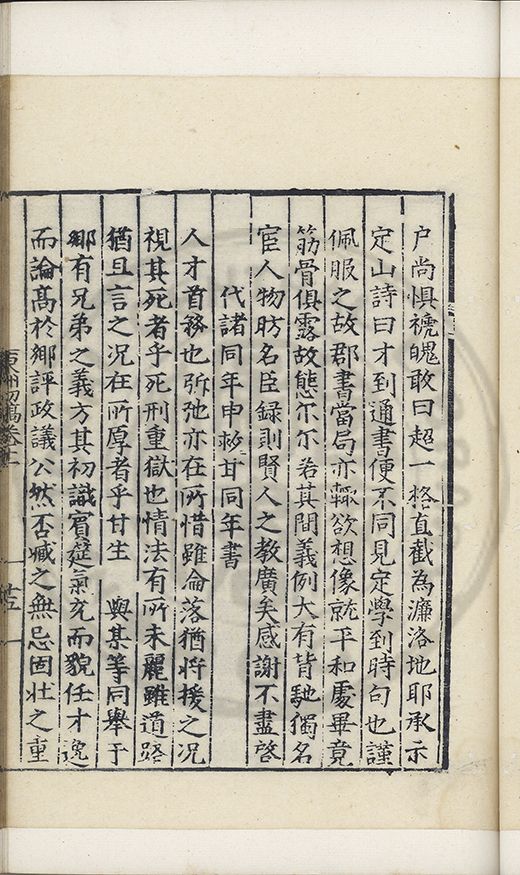 户尚惧褫魄敢曰超一格直截為濂洛地耶承示
定山詩曰才到通書便不同見定學到時句也謹
佩服之故郡書當局亦輙欲想像就平和處畢竟
筋骨俱露故態尓尓若其間義例大有背馳獨名
宦人物昉名臣録則賢人之教廣矣感謝不盡啓
代諸同年申救甘同年書
人才首務也斥弛亦在所惜雖淪落猶将援之况
視其死者乎死刑重獄也情法有所未麗雖道路
猶且言之况在所厚者乎甘生 與某等同舉于
鄉有兄弟之義方其初識賓筵氣充而貌任才逸
而論髙於鄉評政議公然否臧之無忌固壮之重
東洲初稿卷十二